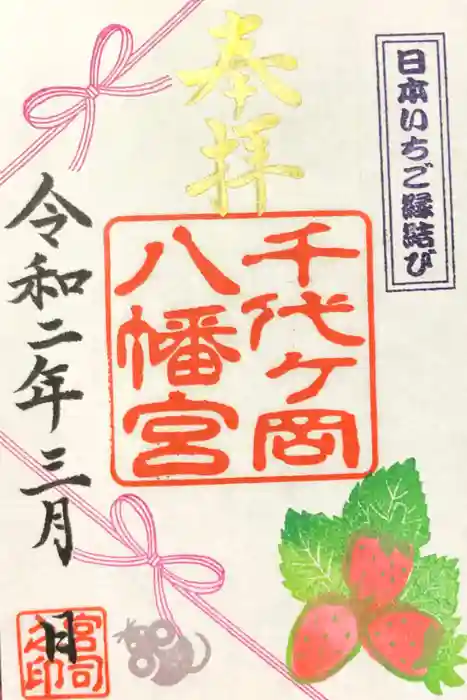 奉拝
日本いちご縁結び
千代ケ岡
八幡宮
令和二年三月
日
宮司
之印